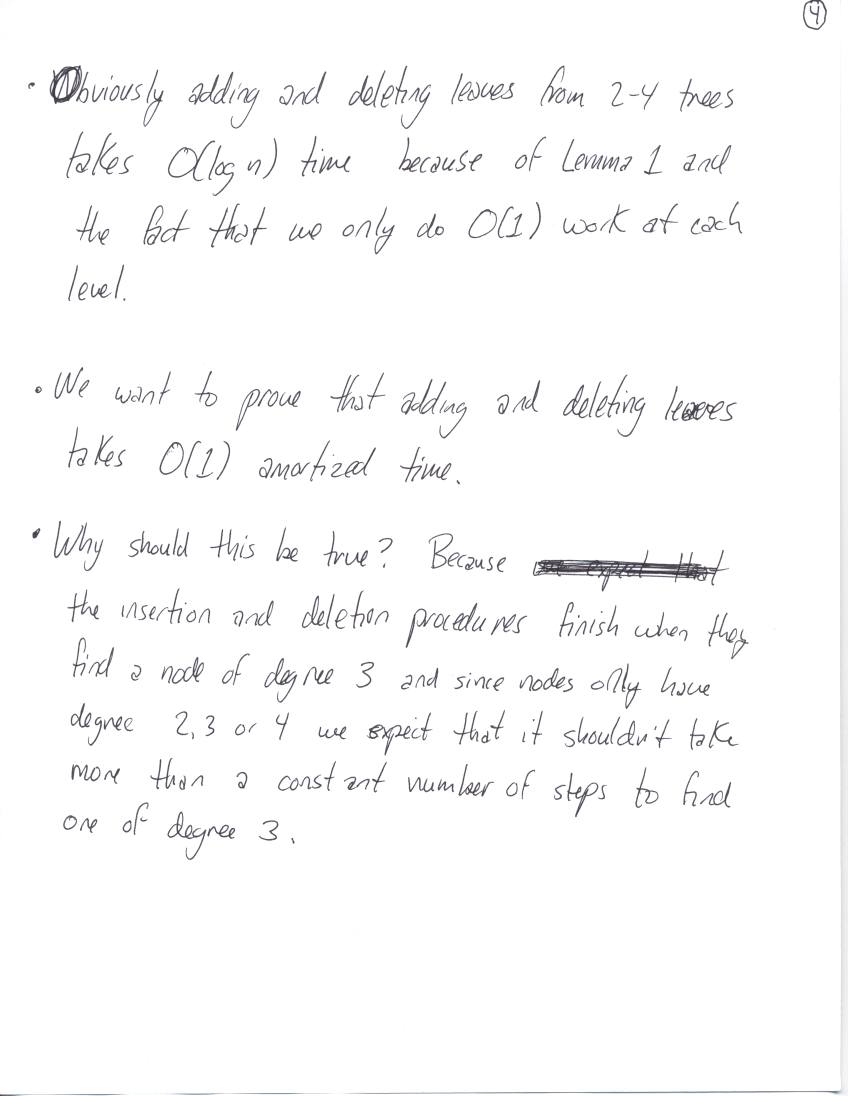 4
• Obviously adding and deleting leaves from 2-4 trees
takes O(log n) time because of Lemma 1 and
the fact that we only do O(1) work at each
level.
• We want to prove that adding and deleting leaves
takes O(1) amortized time.
• Why should this be true? Because we expect that
the insertion and deletion procedures finish when they
find a node of degree 3 and since nodes only have
degree 2, 3 or 4 we expect that it shouldn't take
more than a constant number of steps to find
one of degree 3.